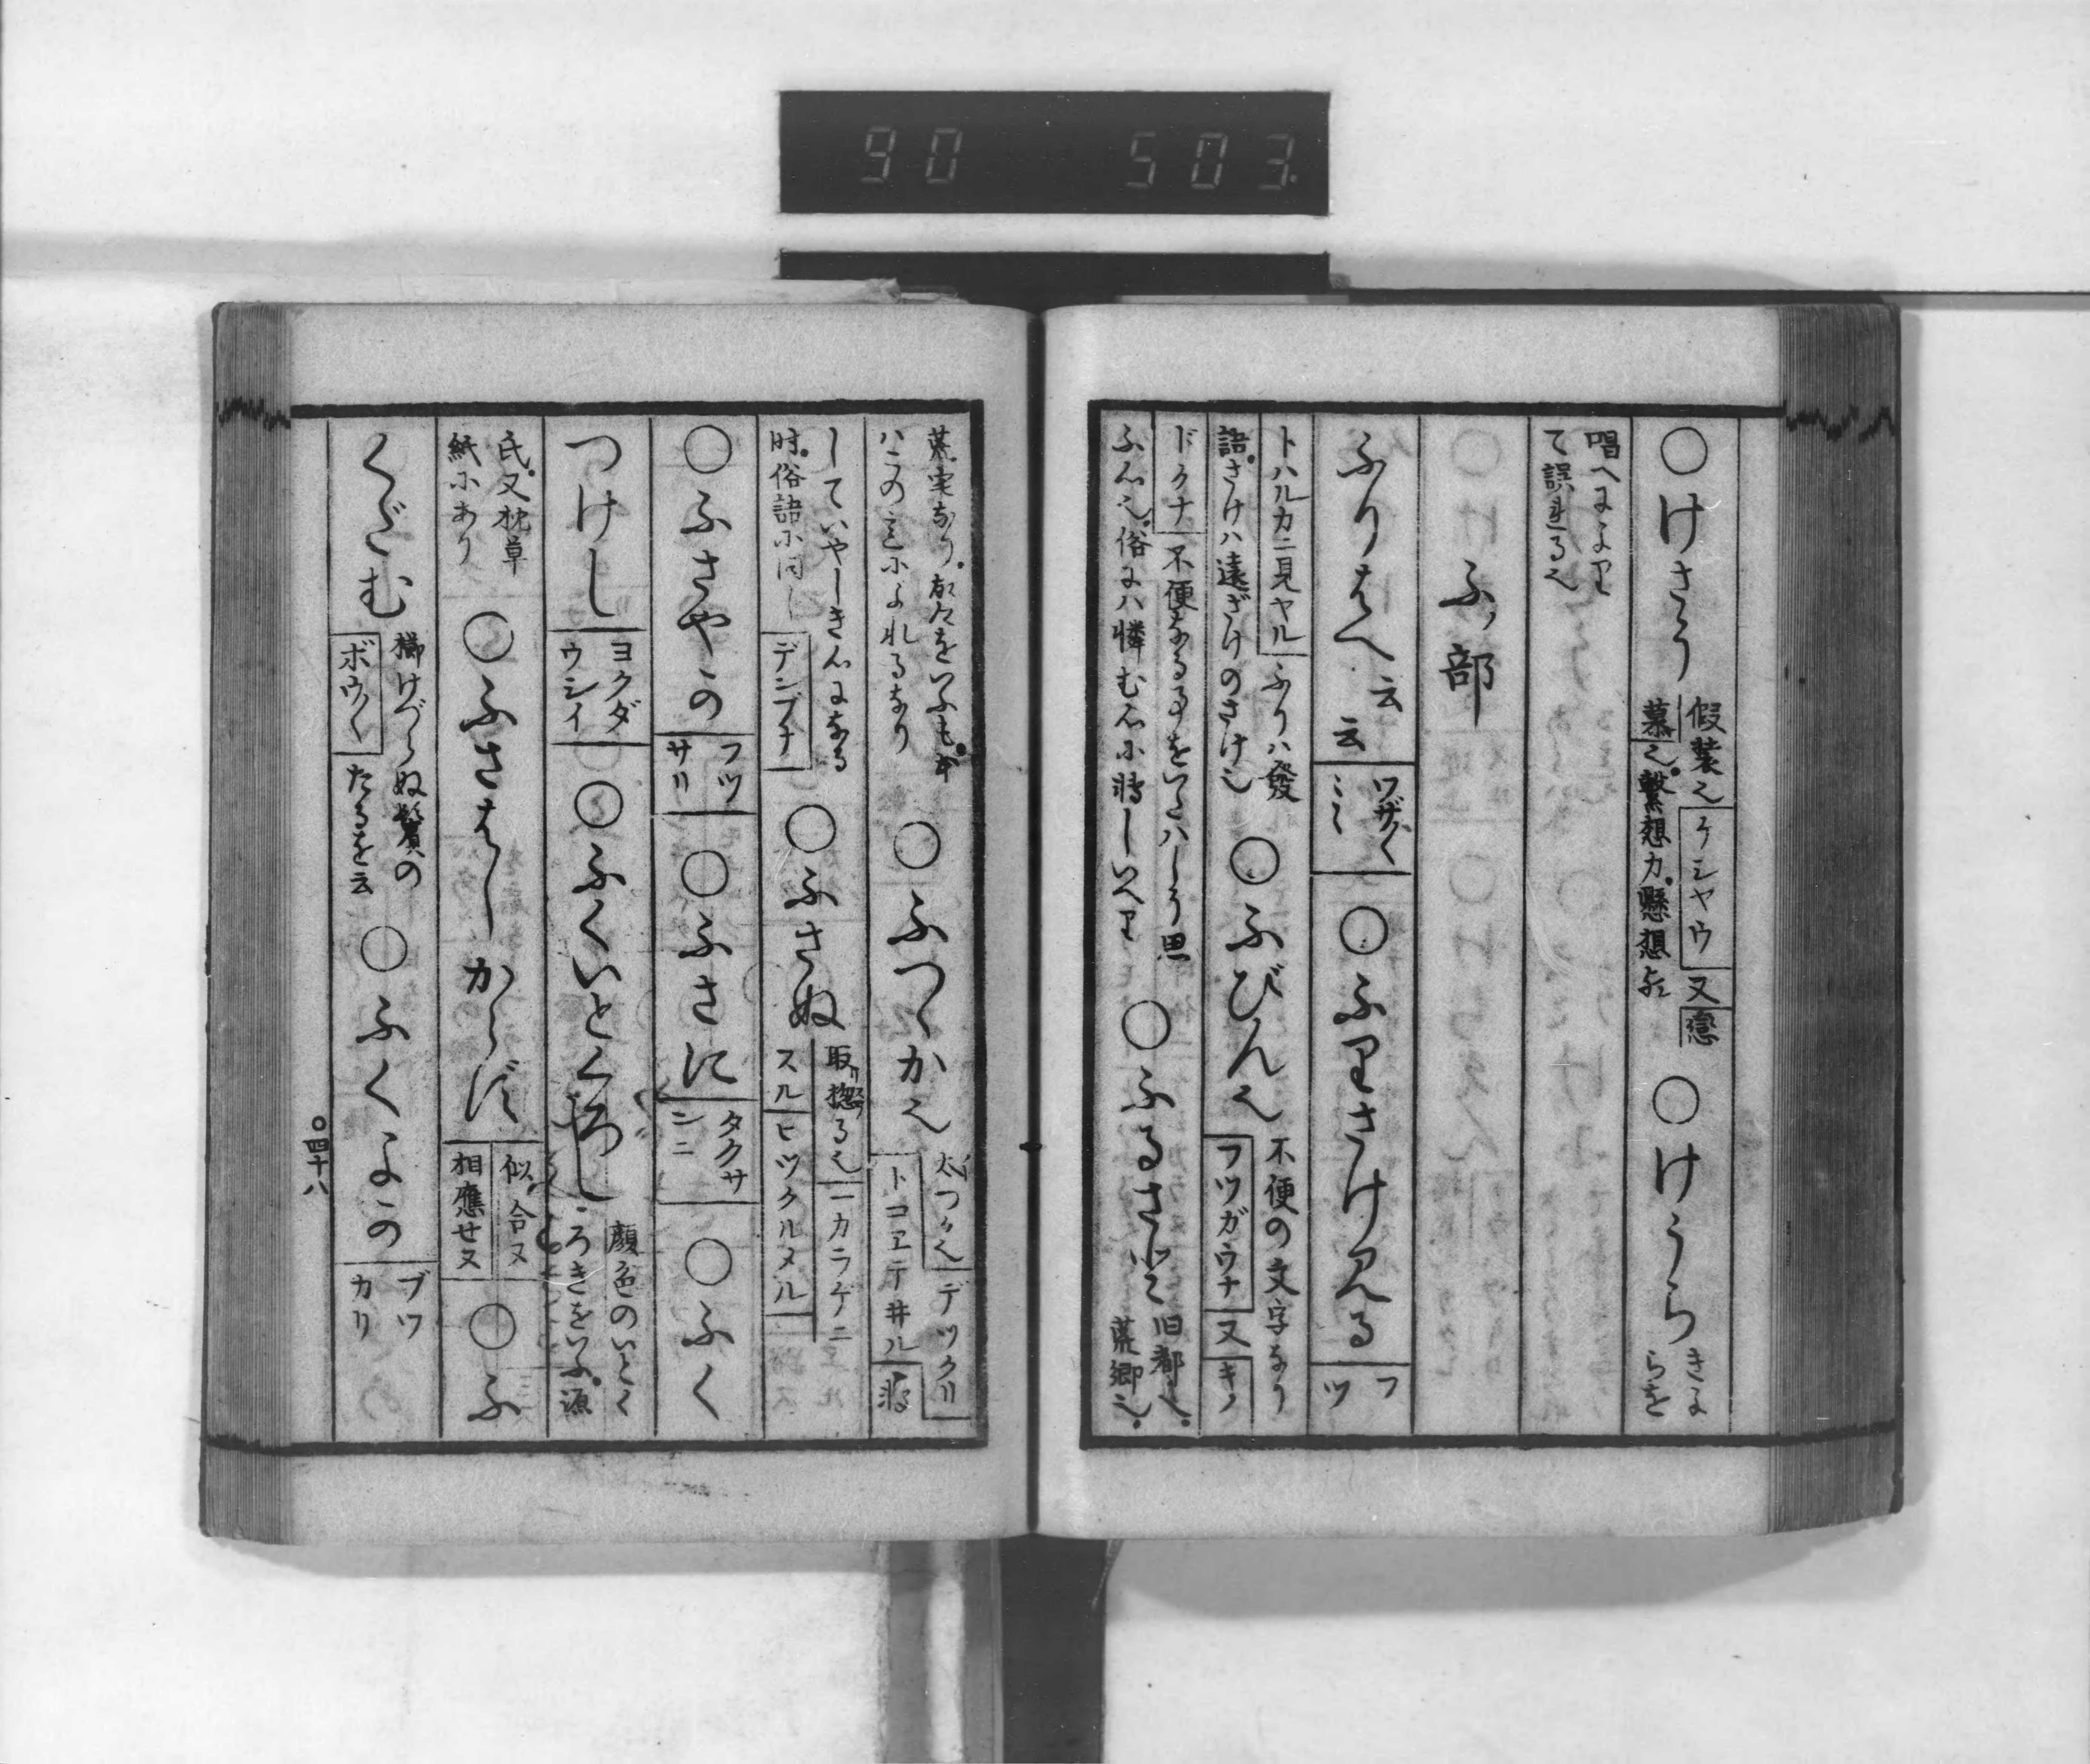 90 503
○けさう
假装也ケシヤウ又戀
慕也。繋想カ。懸想
○けうら
きよ
らを
唱へより
て誤れる也
ふノ部
ふりはへ
云
云
ワザ〱
○ふりさけ見る
フ
ツ
トハルカニ見ヤル ふり八發
語。さけハ遠ざけのさけ也
○ふびん也
不便の文字なり
フツガウナ又キノ
ドクナ 不便なる事をいたハしう思
ふ心也。俗にハ憐む心に轉しいへり
○ふるさと
旧都也。
荒郷也。
荒宅なり。故人をいふも本
ハこの言によれるなり
○ふつゝか也
太つゝ也デツクリ
トコエテ井ル轉
していやしき心になる
時。俗語に同し デンブナ
○ふさぬ
取リ揔る也一カラゲニ
スルヒツクルメル
○ふさやか
フツ
サリ
○ふさに
タクサ
ンニ
○ふく
つけし
ヨクダ
ウシイ
○ふくいとくろし
顔色のいとく
ろきをいふ。源
氏。又枕草
紙にあり
○ふさはしからず
似ィ合ヌ
相應せヌ
○ふ
くだむ
櫛けづらぬ鬢の
ボウ〱たるを云
○ふくよか
ブツ
カリ
○四十八